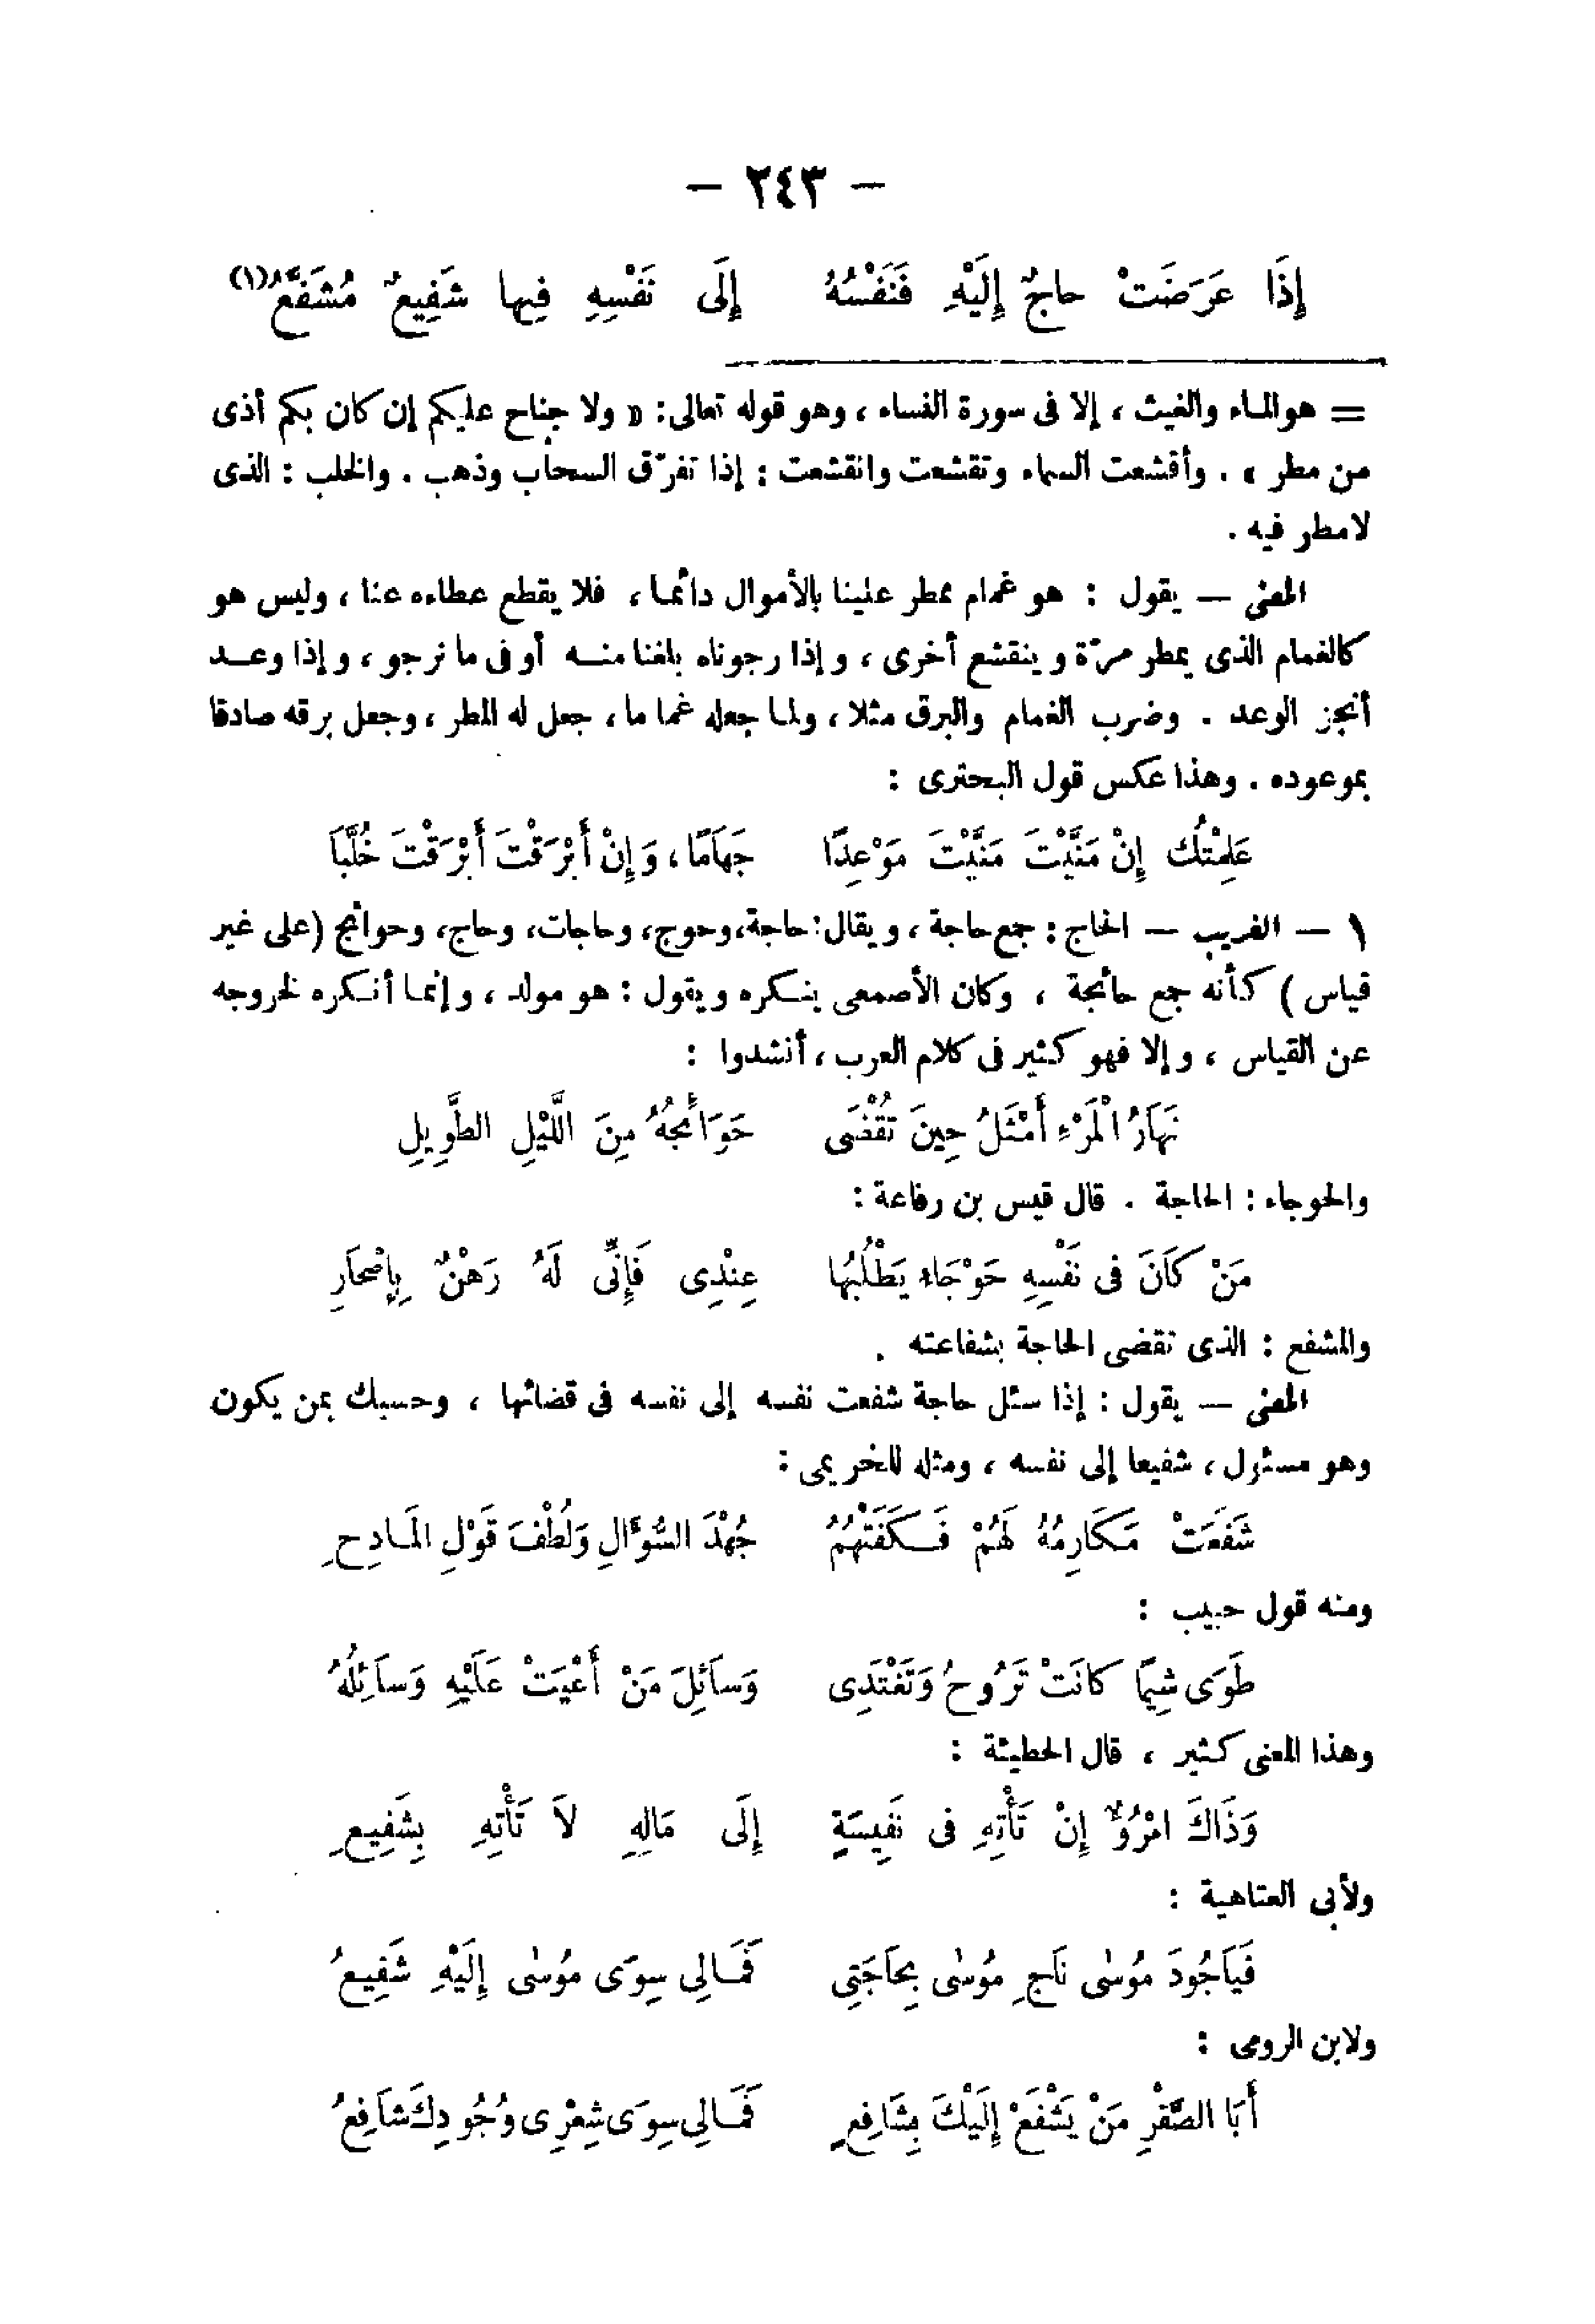 — ٢٤٣ —
إِذَا عَرَضَتْ حاجٌ إِلَيْهِ فَنَفْسُهُ إِلَى نَفْسِهِ فِيها شَفِيعٌ مُشَفَّعُ(١)
= هو الماء والغيث ، إلا فى سورة النساء ، وهو قوله تعالى: « ولا جناح عليكم إن كان بكم أذى
من مطر » . وأقشعت السماء وتقشعت وانقشعت : إذا تفرّق السحاب وذهب . والخلب : الذى
لامطر فيه .
المعنى — يقول : هو غمام يمطر علينا بالأموال دائما ، فلا يقطع عطاءه عنا ، وليس هو
كالغمام الذى يمطر مرّة وينقشع أخرى ، وإذا رجوناه بلغنا منه أوفى ما نرجو ، وإذا وعد
أنجز الوعد . وضرب الغمام والبرق مثلا ، ولما جعله غماما ، جعل له المطر ، وجعل برقه صادقا
بموعوده . وهذا عكس قول البحترى :
عَلِمْتُك إِنْ مَنَّيْتَ مَنَّيْتَ مَوْعِدًا جَهَامًا ، وَإِنْ أَبْرَقْتَ أَبْرَقْتَ خُلَّبَا
١ — الغريب — الحاج : جمع حاجة ، ويقال: حاجة، وحوج، وحاجات، وحاج، وحوائج (على غير
قياس) كأنه جمع حائجة ، وكان الأصمعى ينكره ويقول : هو مولد ، وإنما أنكره لخروجه
عن القياس ، وإلا فهو كثير فى كلام العرب ، أنشدوا :
نَهَارُ الْمَرْءِ أَمْثَلُ حِينَ تُقْضَى حَوَائِجُهُ مِنَ اللَّيْلِ الطَّوِيلِ
والحوجاء : الحاجة . قال قيس بن رفاعة :
مَنْ كَانَ فى نَفْسِهِ حَوْجَاءُ يَطْلُبُهَا عِنْدِى فَإِنِّى لَهُ رَهْنٌ بِإِصْحَارِ
والمشفع : الذى تقضى الحاجة بشفاعته .
المعنى — يقول : إذا سئل حاجة شفعت نفسه إلى نفسه فى قضائها ، وحسبك بمن يكون
وهو مسئول ، شفيعا إلى نفسه ، ومثله للخريمى :
شَفَعَتْ مَكَارِمُهُ لَهُمْ فَكَفَتْهُمُ جُهْدَ السُّؤَالِ وَلُطْفَ قَوْلِ المَادِحِ
ومنه قول حبيب :
طَوَى شِيَمًا كانَتْ تَرُوحُ وَتَغْتَدِى وَسائِلَ مَنْ أَعْيَتْ عَلَيْهِ وَسائِلُهُ
وهذا المعنى كثير ، قال الحطيئة :
وَذَاكَ امْرُؤٌ إِنْ تَأْتِهِ فى نَفِيسَةٍ إِلَى مَالِهِ لاَ تَأْتِهِ بِشَفِيعِ
ولأبى العتاهية :
فَيَاجُودَ مُوسٰى نَاجِ مُوسٰى بِحَاجَتِى فَمَالِى سِوَى مُوسٰى إِلَيْهِ شَفِيعُ
ولابن الرومى :
أَبَا الصَّقْرِ مَنْ يَشْفَعْ إِلَيْكَ بِشَافِعٍ فَمَالِى سِوَى شِعْرِى وُجُودِكَ شَافِعُ